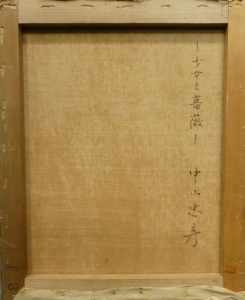 ―少女と薔薇―　中山忠彦